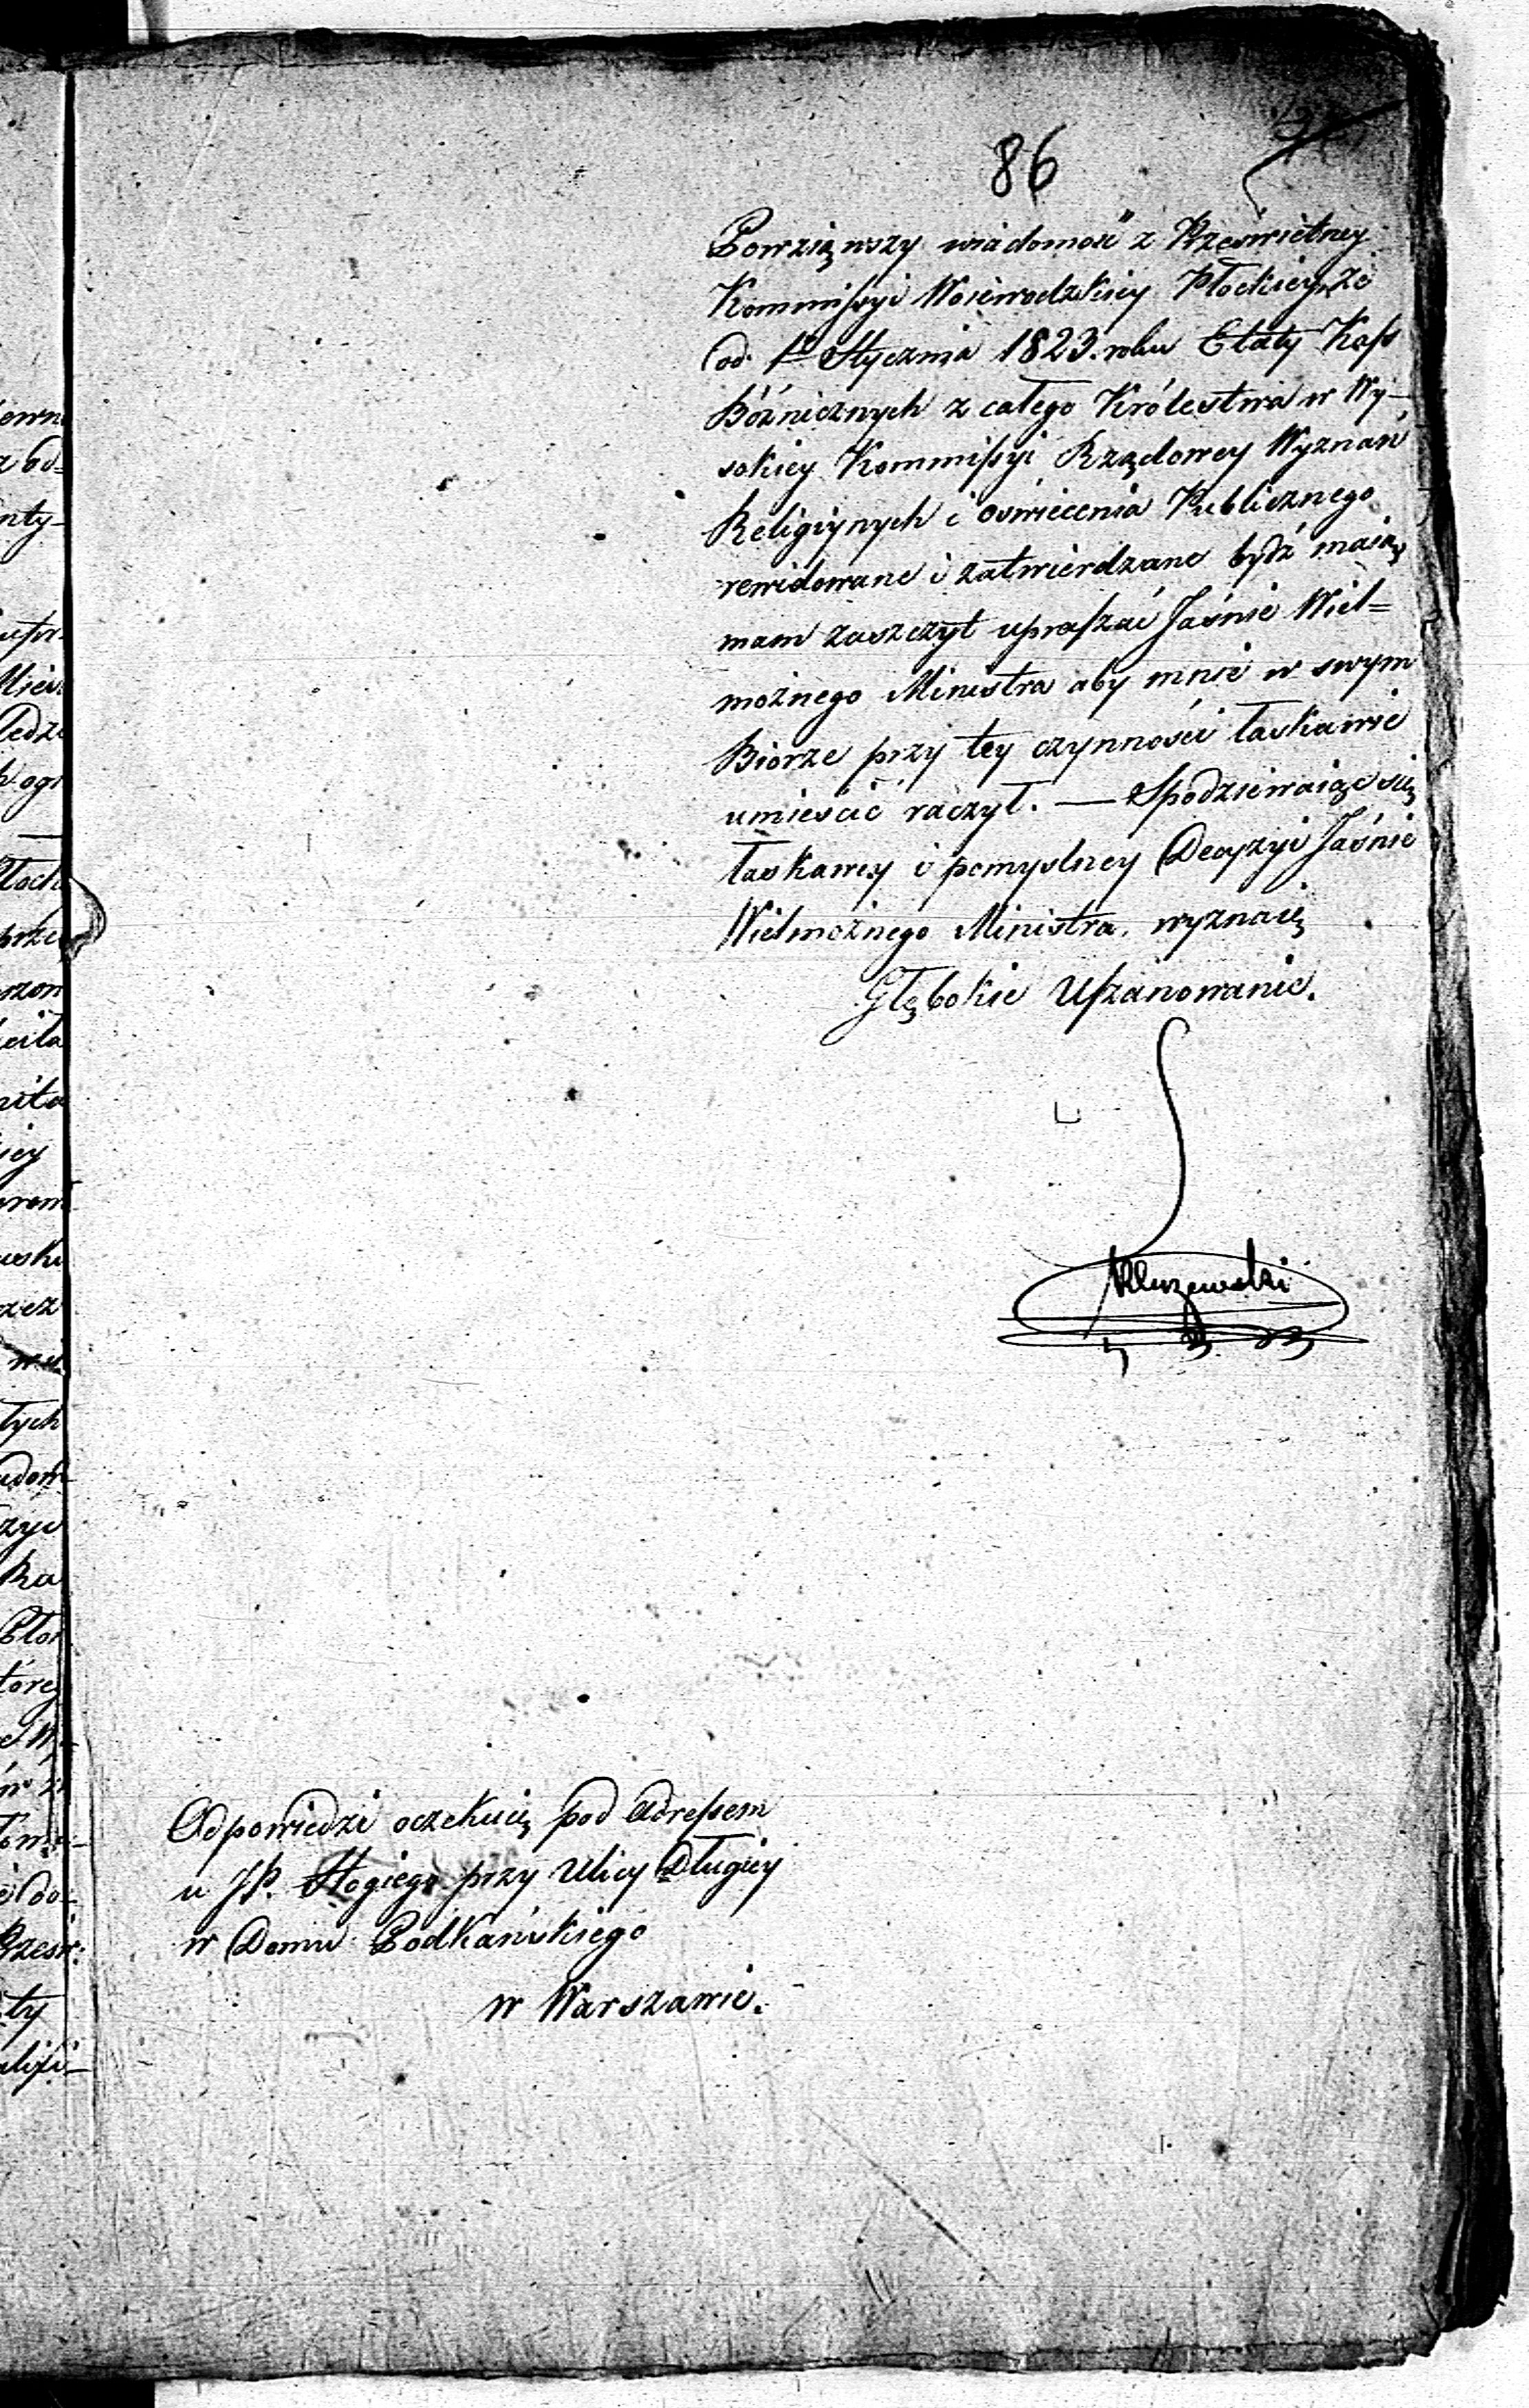 86
Powziąwszy wiadomość z Prześwietney
Kommissyi Woiewodzkiey Płockiey, że
od 1go Stycznia 1823. roku Etaty Kass
Bóżnicznych z całego Królestwa w Wy-
sokiey Kommissyi Rządowey Wyznań
Religiynych i oświecenia Publicznego
rewidowane i zatwierdzane bydź maią,
mam zaszczyt upraszać Jaśnie Wiel=
możnego Ministra aby mnie w swym
Biorze przy tey czynności łaskawie
umieścić raczył. — Spodziewaiąc się
łaskawey i pomyslney Decyzyi Jaśnie
Wielmożnego Ministra, wyznaię
Głębokie Uszanowanie.
Odpowiedzi oczekuię pod Adressem
u JP. Stogiego przy Ulicy Długiey
w Domu Podkańskiego
w Warszawie.